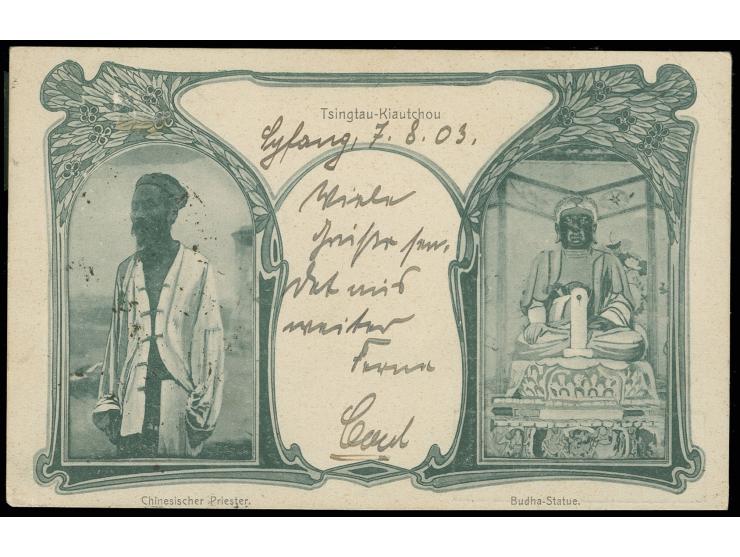 Tsingtau-Kiautchou
Syfang, 7. 8. 03.
Viele
Grüße sen-
det aus
weiter
Ferne
Carl
Chinesischer Priester.
Budha-Statue.